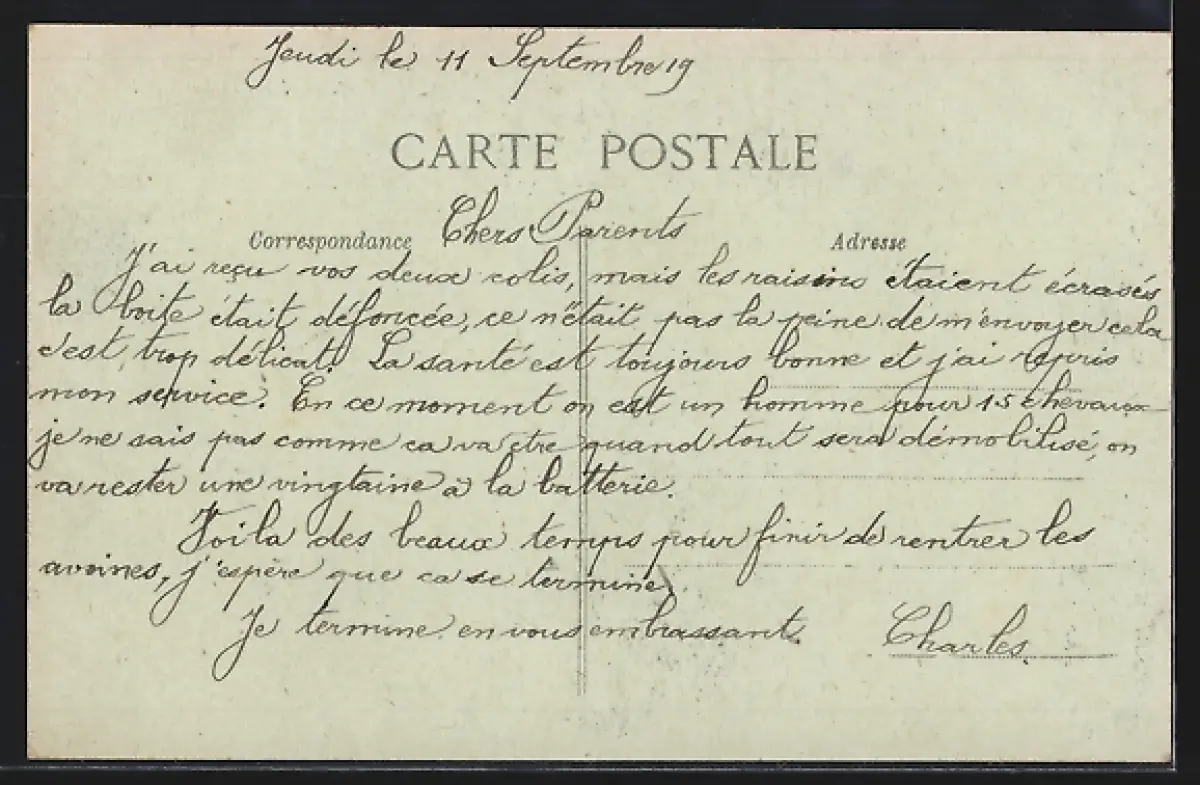 Jeudi le 11 Septembre 19
CARTE POSTALE
Chers Parents
Correspondance
Adresse
J'ai reçu vos deux colis, mais les raisins étaient écrasés
la boite était défoncée, ce n'était pas la peine de m'envoyer cela
c'est trop délicat. La santé est toujours bonne et j'ai repris
mon service. En ce moment on est un homme pour 15 chevaux
je ne sais pas comme ca va être quand tout sera démobilisé, on
va rester une vingtaine à la batterie.
Voila des beaux temps pour finir de rentrer les
avoines, j'espère que ca se termine.
Je termine en vous embrassant.
Charles.